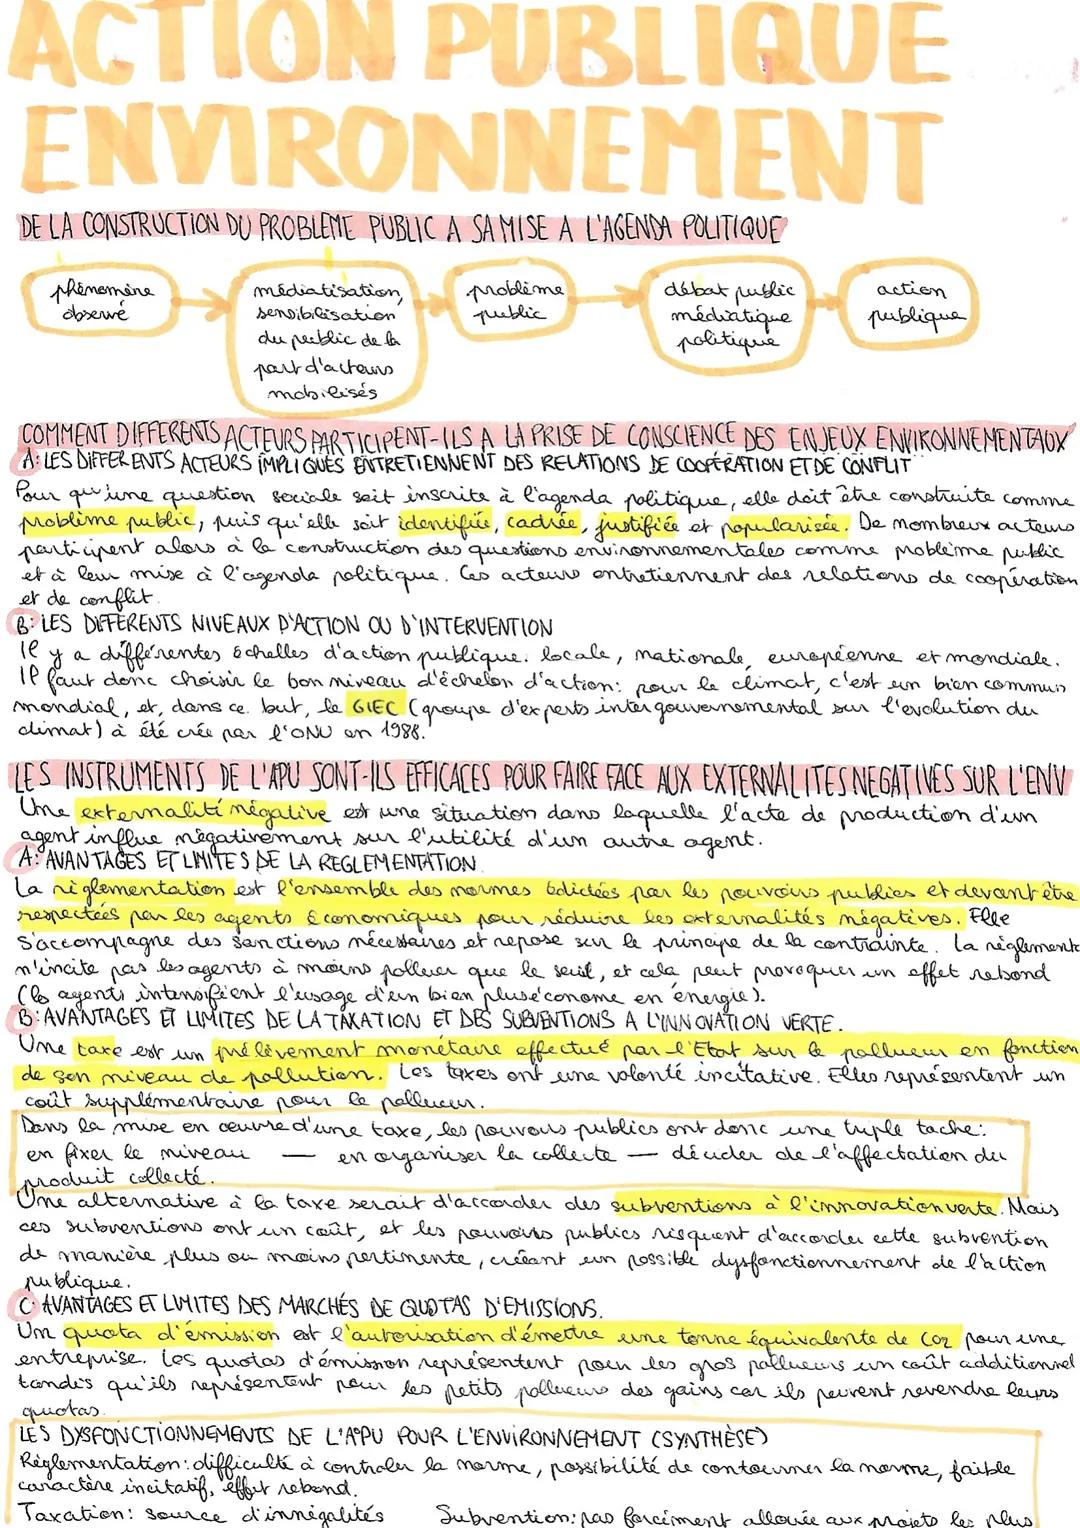 ACTION PUBLIQUE
ENVIRONNEMENT
DE LA CONSTRUCTION DU PROBLEME PUBLIC A SA MISE A L'AGENDA POLITIQUE
phénomène
observé
médiatisation,
sensibilisation
du public de la
part d'acteurs
mobilisés
problème
public
débat public
médiatique
politique
action
publique
COMMENT DIFFERENTS ACTEURS PARTICIPENT-ILS A LA PRISE DE CONSCIENCE DES ENJEUX ENVIRONNEMENTAUX
A: LES DIFFERENTS ACTEURS IMPLIQUES ENTRETIENNENT DES RELATIONS DE COOPÉRATION ET DE CONFLIT
Pour qu'une question sociale soit inscrite à l'agenda politique, elle doit être construite comme
problème public, puis qu'elle soit identifiée, cadrée, justifiée et popularisée. De nombreux acteurs
participent alors à la construction des questions environnementales comme problème public
et à leur mise à l'agenda politique. Ces acteurs entretiennent des relations de coopération
et de conflit.
B: LES DIFFERENTS NIVEAUX D'ACTION OU D'INTERVENTION
Il y a différentes échelles d'action publique: locale, nationale, européenne et mondiale.
Il faut donc choisir le bon niveau d'échelon d'action: pour le climat, c'est un bien commun
mondial, et, dans ce but, le GIEC (groupe d'experts intergouvernemental sur l'évolution du
climat) à été crée par l'ONU en 1988.
LES INSTRUMENTS DE L'APU SONT-ILS EFFICACES POUR FAIRE FACE AUX EXTERNALITES NEGATIVES SUR L'ENV
Une externalité négative est une situation dans laquelle l'acte de production d'un
agent influe négativement sur l'utilité d'un autre agent.
A: AVANTAGES ET LIMITES DE LA REGLEMENTATION
La règlementation est l'ensemble des normes édictées par les pouvoirs publics et devant être
respectées par les agents économiques pour réduire les externalités négatives. Elle
s'accompagne des sanctions nécessaires et repose sur le principe de la contrainte. La règlement
n'incite pas les agents à moins polluer que le seuil, et cela peut provoquer un effet rebond
(les agents intensifient l'usage d'un bien plus économe en énergie).
B: AVANTAGES ET LIMITES DE LA TAXATION ET DES SUBVENTIONS A L'INNOVATION VERTE.
Une taxe est un prélèvement monétaire effectué par l'Etat sur le pollueur en fonction
de son niveau de pollution. Les taxes ont une volonté incitative. Elles représentent un
coût supplémentaire pour le pollueur.
Dans la mise en œuvre d'une taxe, les pouvoirs publics ont donc une triple tache:
en fixer le niveau — en organiser la collecte — décider de l'affectation du
produit collecté.
Une alternative à la taxe serait d'accorder des subventions à l'innovation verte. Mais
ces subventions ont un coût, et les pouvoirs publics risquent d'accorder cette subvention
de manière plus ou moins pertinente, créant un possible dysfonctionnement de l'action
publique.
C: AVANTAGES ET LIMITES DES MARCHÉS DE QUOTAS D'EMISSIONS.
Un quota d'émission est l'autorisation d'émettre une tonne équivalente de CO2 pour une
entreprise. Les quotas d'émission représentent pour les gros pollueurs un coût additionnel
tandis qu'ils représentent pour les petits pollueurs des gains car ils peuvent revendre leurs
quotas.
LES DYSFONCTIONNEMENTS DE L'APU POUR L'ENVIRONNEMENT (SYNTHÈSE)
Règlementation: difficulté à controler la norme, possibilité de contourner la norme, faible
caractère incitatif, effet rebond.
Taxation: source d'innégalités Subvention: pas forcément allouée aux projets les plus